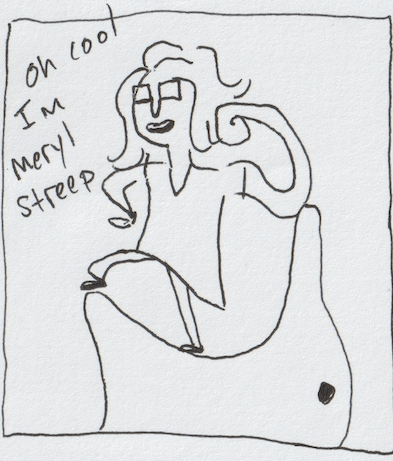 oh cool
I'm
meryl
streep